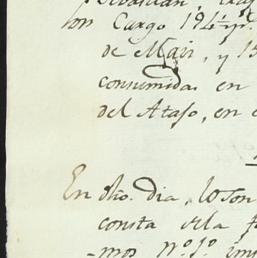 son Cargo 194½ p.
de Maiz, y 15
consumidas en
del Atajo, en
En dho. dia, los on
consta de la f
mos nº. 1º.